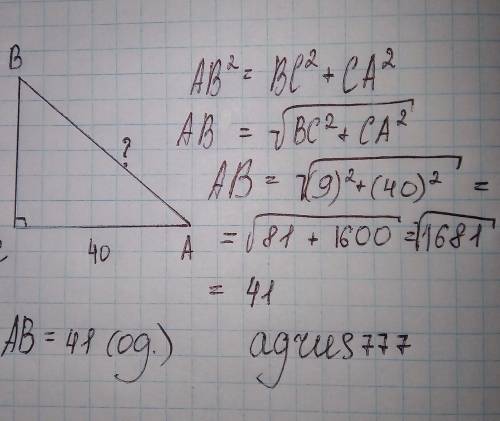 B
AB² = BC² + CA²
AB = √BC² + CA²
?
AB = √(9)² + (40)² =
= √81 + 1600 = √1681
40
A
= 41
AB = 41 (од.)
agrus777